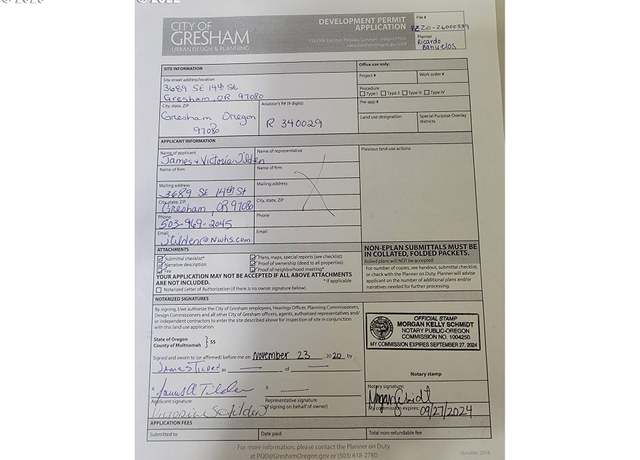 CITY OF
GRESHAM
URBAN DESIGN & PLANNING
DEVELOPMENT PERMIT
APPLICATION
File #
Planner
Ricardo
Banuelos
SITE INFORMATION
Office use only:
Site street address/location
3689 SE 14th St
Gresham, OR 97080
City, state, ZIP
Gresham Oregon
97080
Assessor's R# (9 digits)
R 340029
Project #
Work order #
Procedure
Type I Type II Type III Type IV
Pre-app #
Land use designation
Special Purpose Overlay
districts
APPLICANT INFORMATION
Name of applicant
James + Victoria Tilden
Name of representative
Previous land use actions
Name of firm
Name of firm
Mailing address
3689 SE 14th St
Mailing address
City, state, ZIP
Gresham, OR 97080
City, state, ZIP
Phone
503-969-2045
Phone
Email
JTilden@nwhs.com
Email
ATTACHMENTS
Submittal checklist*
Narrative description
Fee
Plans, maps, special reports (see checklist)
Proof of ownership (deed to all properties)
Proof of neighborhood meeting*
YOUR APPLICATION MAY NOT BE ACCEPTED IF ALL ABOVE ATTACHMENTS
ARE NOT INCLUDED.
*If applicable
Notarized Letter of Authorization (if there is no owner signature below).
NON-EPLAN SUBMITTALS MUST BE
IN COLLATED, FOLDED PACKETS.
Rolled plans will NOT be accepted
For number of copies, see handout, submittal checklist,
or check with the Planner on Duty. Planner will advise
applicant on the number of additional plans and/or
narratives needed for further processing.
NOTARIZED SIGNATURES
By signing, I/we authorize the City of Gresham employees, Hearings Officer, Planning Commissioners,
Design Commissioners and all other City of Gresham officers, agents, authorized representatives and/
or independent contractors to enter the site described above for inspection of site in conjunction
with this land use application.
State of Oregon
County of Multnomah
} SS
Signed and sworn to (or affirmed) before me on November 23 2020 by
of
James A Tilden
Applicant signature
Representative signature
(if signing on behalf of owner)
OFFICIAL STAMP
MORGAN KELLY SCHMIDT
NOTARY PUBLIC-OREGON
COMMISSION NO. 1004250
MY COMMISSION EXPIRES SEPTEMBER 27, 2024
Notary stamp
Notary signature:
My commission expires: 09/27/2024
APPLICATION FEES
Submitted by
Date paid
Total non-refundable fee
For more information, please contact the Planner on Duty
at POD@GreshamOregon.gov or (503) 618-2780